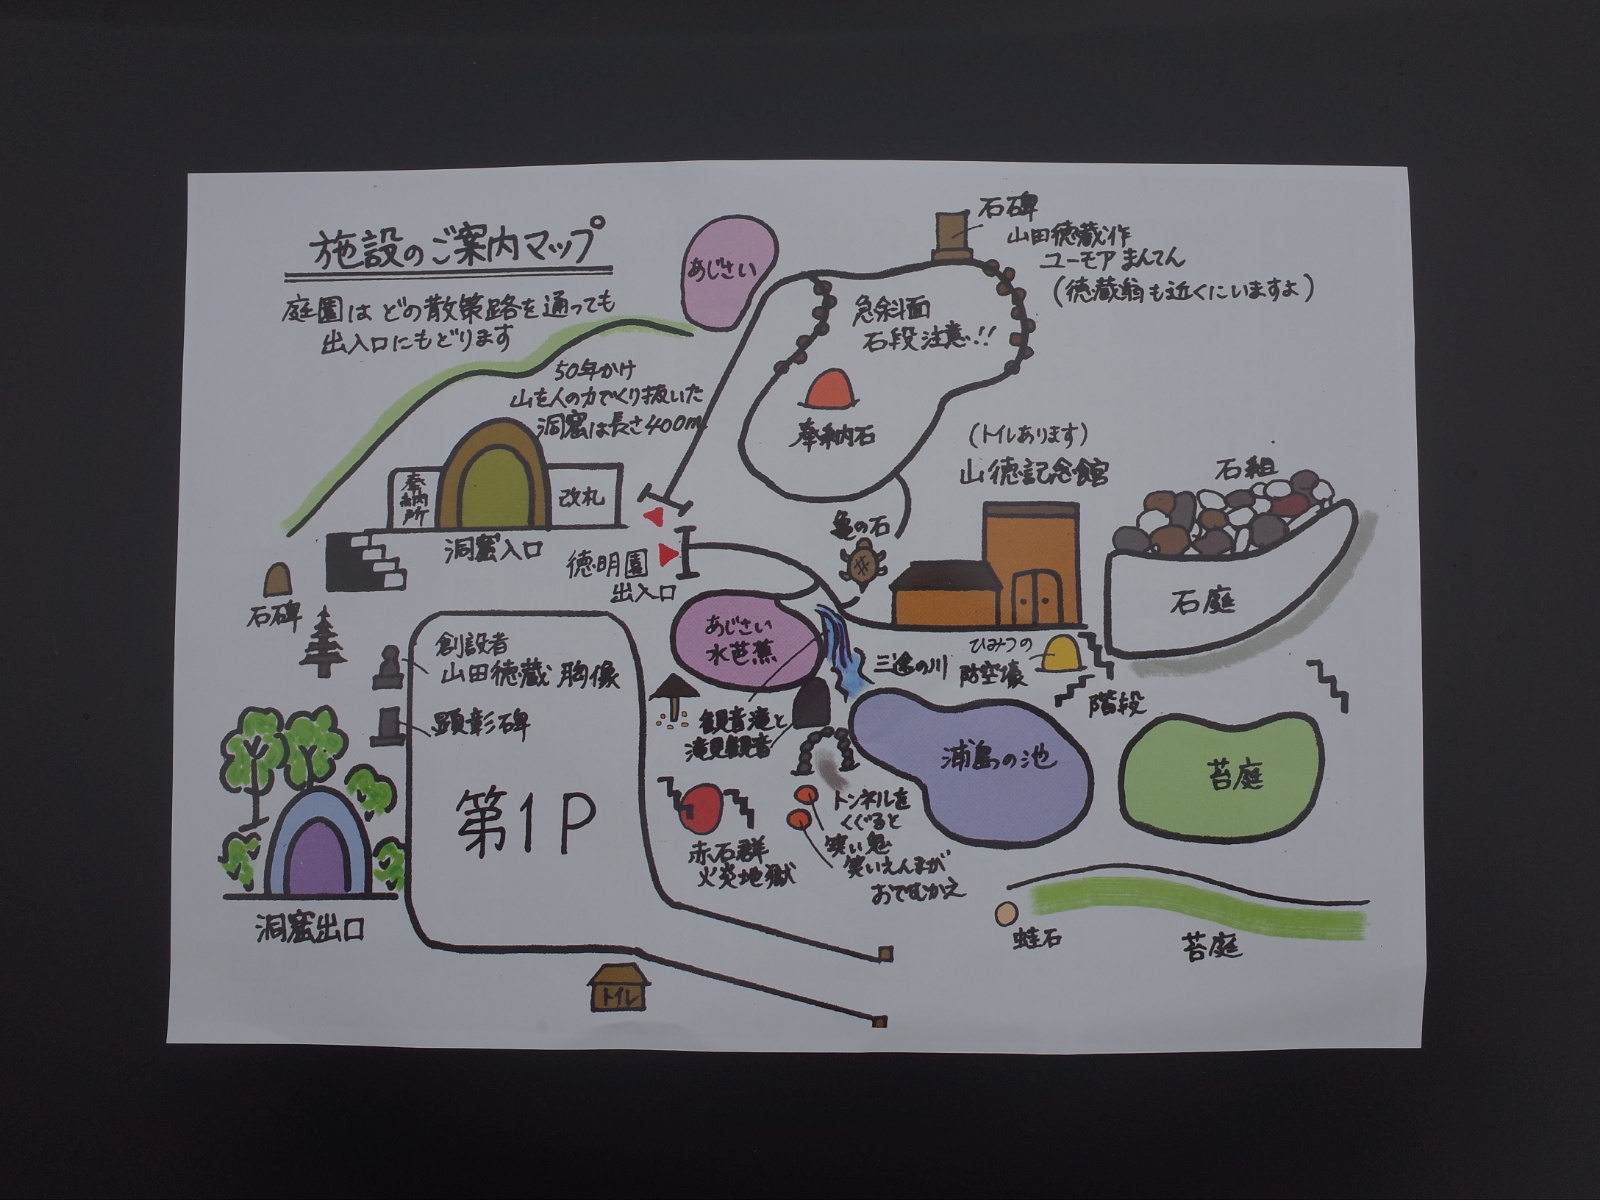 施設のご案内マップ
庭園はどの散策路を通っても
出入口にもどります
あじさい
石碑
山田徳蔵作
ユーモアまんてん
(徳蔵翁も近くにいますよ)
急斜面
石段注意!!
奉納石
50年かけ
山を人の力でくり抜いた
洞窟は長さ400m
奉納所
改札
洞窟入口
徳明園
出入口
石碑
(トイレあります)
山徳記念館
亀の石
石組
石庭
創設者
山田徳蔵胸像
顕彰碑
第1P
あじさい
水芭蕉
三途の川
ひみつの
防空壕
階段
観音滝と
滝見観音
浦島の池
苔庭
トンネルを
くぐると
笑い鬼
笑いえんまが
おでむかえ
赤石群
火炎地獄
洞窟出口
蛙石
苔庭
トイレ